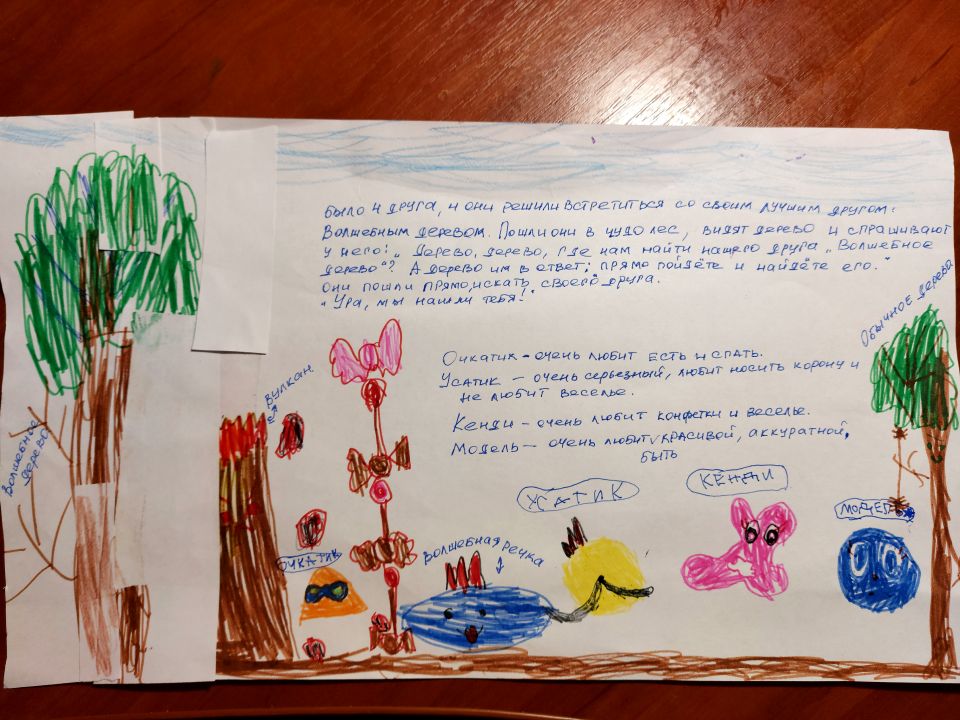 было 4 друга, и они решили встретиться со своим лучшим другом:
Волшебным деревом. Пошли они в чудо лес, видят дерево и спрашивают
у него: „Дерево, дерево, где нам найти нашего друга „Волшебное
дерево"? А дерево им в ответ: „прямо пойдёте и найдёте его."
Они пошли прямо, искать своего друга.
"Ура, мы нашли тебя!"
Обычное дерево
Очкатик - очень любит есть и спать.
Усатик - очень серьезный, любит носить корону и
не любит веселье.
Кенди - очень любит конфетки и веселье.
Модель - очень любит красивой, аккуратной,
быть
Вулкан
Волшебное
дерево
Усатик
Кенди
Модель
Очкатик
Волшебная речка